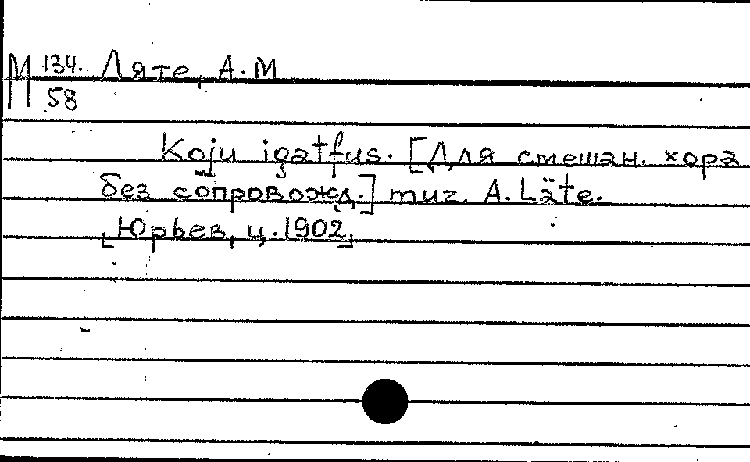 М 134. Ляте, А. М
58
Koju igatfus. [Для смешан. хора
без сопровожд.] muz. A. Läte.
[Юрьев, ц. 1902]